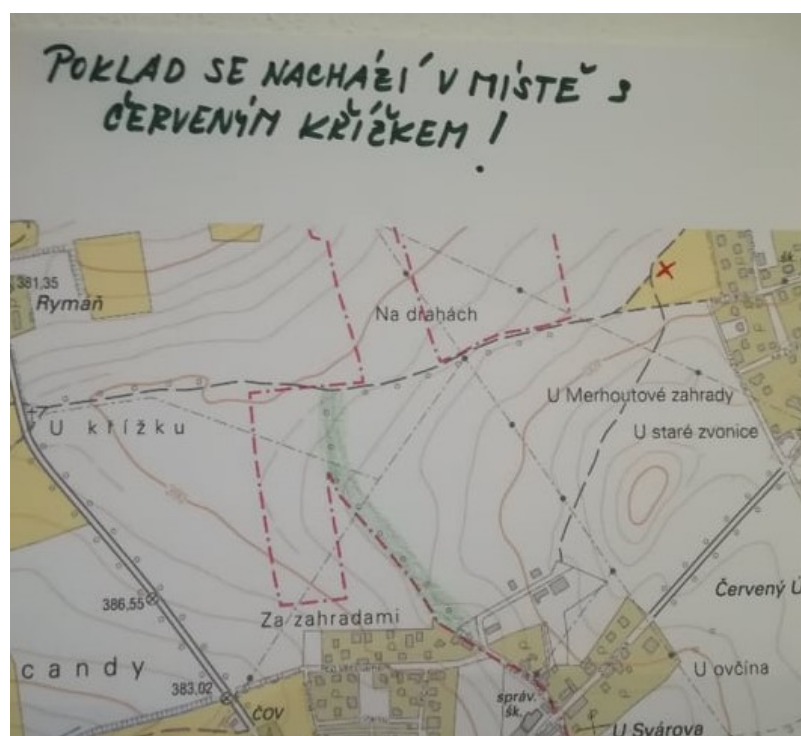 POKLAD SE NACHÁZÍ V MÍSTĚ S
ČERVENÝM KŘÍŽKEM!
381,35
Rymáň
šk
Na drahách
U Merhoutové zahrady
U křížku
U staré zvonice
386,55
Červený Ú
Za zahradami
candy
383,02
U ovčína
správ.
šk.
ČOV
U Svárova